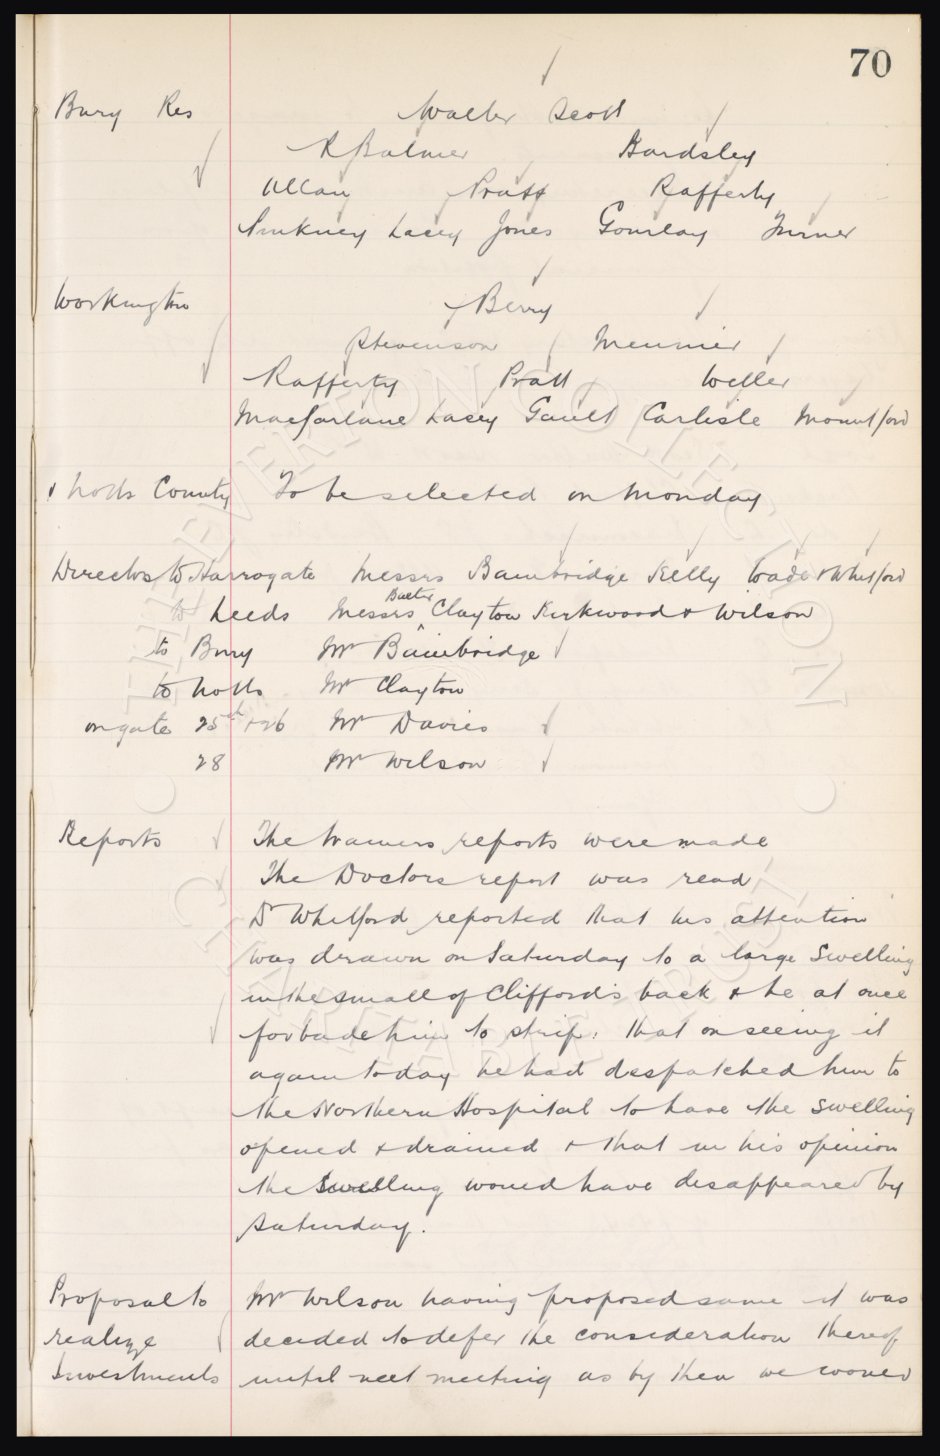 70
Bury Res Walter Scott
R Balmer Bardsley
Allan Pratt Rafferty
Pinkney Lacey Jones Gourlay Turner
Workington Berry
Stevenson Meunier
Rafferty Pratt Weller
Macfarlane Lacey Gault Carlisle Mountford
v Notts County To be selected on Monday
Directors to Harrogate Messrs Bainbridge Kelly Wade & Whitford
to Leeds Messrs Baxter Clayton Kirkwood & Wilson
to Bury Mr Bainbridge
to Notts Mr Clayton
on gate 25th & 26 Mr Davies
28 Mr Wilson
Reports The trainers reports were made
The Doctors report was read
Dr Whitford reported that his attention
was drawn on Saturday to a large Swelling
in the small of Clifford's back & he at once
forbade him to strip. That on seeing it
again today he had despatched him to
the Northern Hospital to have the swelling
opened & drained & that in his opinion
the Swelling would have disappeared by
Saturday.
Proposal to Mr Wilson having proposed same it was
realize decided to defer the consideration thereof
Investments until next meeting as by then we would
THE EVERTON COLLECTION
CHARITABLE TRUST